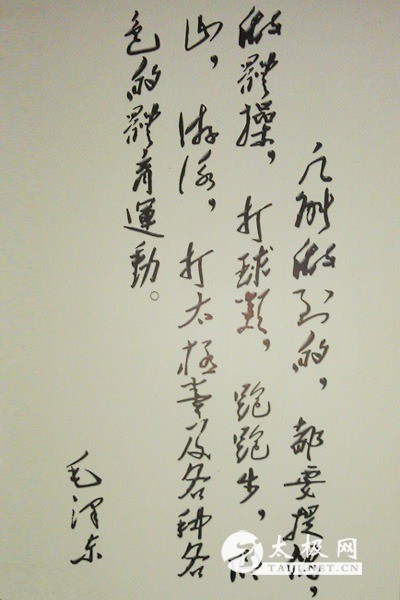 凡能做到的，都要提倡，
做體操，打球類，跑跑步，爬
山，游泳，打太極拳及各種各
色的體育運動。
毛澤東
太极网
TAIJI.NET.CN